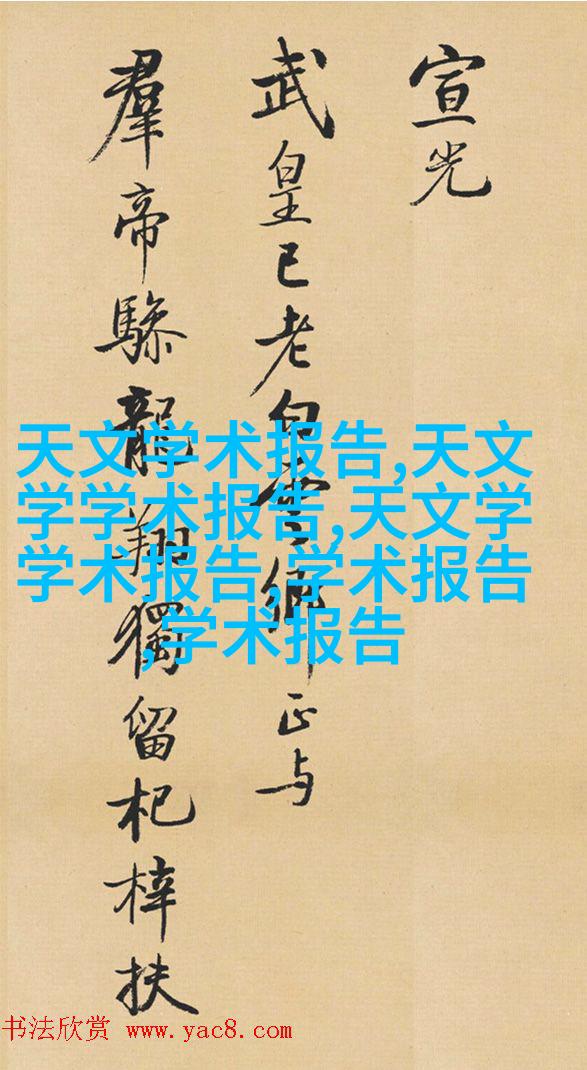 宣光
武皇已老白雲鄉正与
羣帝驂龍翔獨留杞梓扶
天文学术报告,天文
学学术报告,天文学
学术报告,学术报告
,学术报告
书法欣赏 www.yac8.com